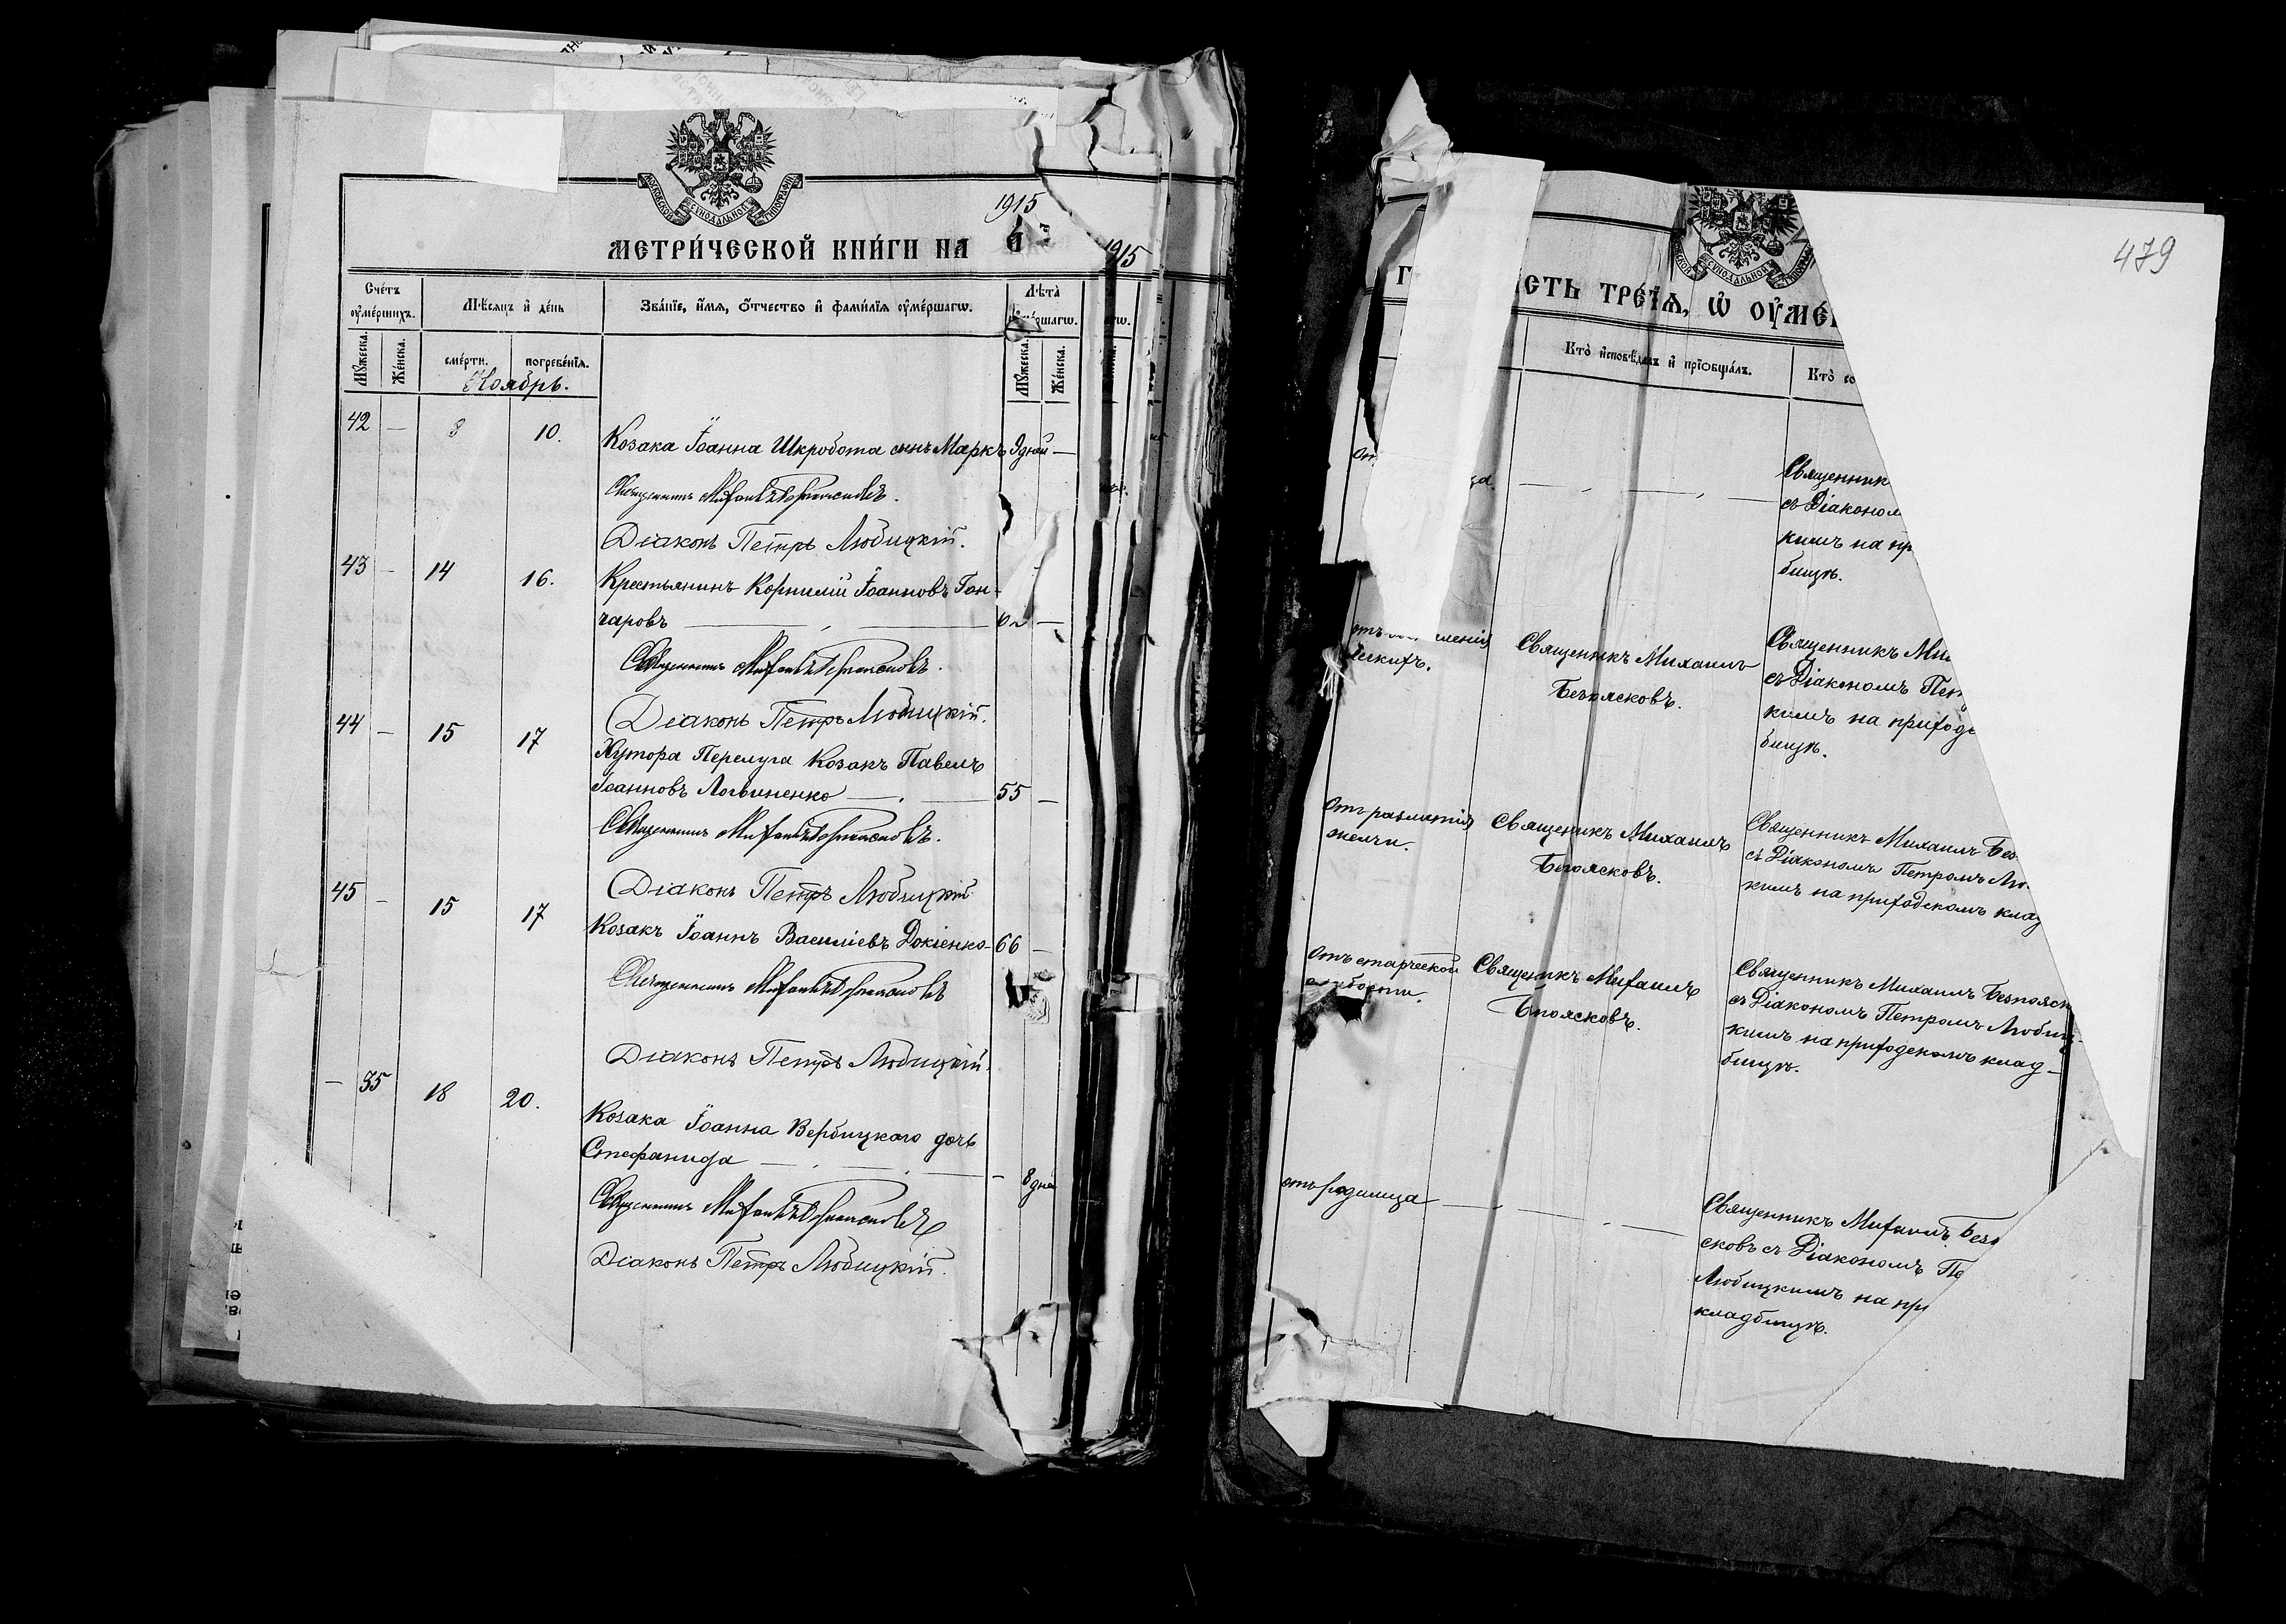 МОСКОВСКОЙ СѴНОДАЛЬНОЙ ТИПОГРАФІИ
1915
МЕТРИ́ЧЕСКОЙ КНИ́ГИ НА
1915
Сче́тъ оу҆ме́ршихъ.
Мѣ́сяцъ и҆ де́нь
Зва́нїе, и҆́мя, ѻ҆́тчество и҆ фамѝлїя оу҆ме́ршагѡ.
Лѣ́та
Мꙋ́жеска.
Же́нска.
сме́рти.
погребе́нїѧ.
Мꙋ́жеска.
Же́нска.
Ноябрь.
42 — 8 10.
Козака Іоанна Шкробота сынъ Маркъ 9 дней —
Священникъ Михаилъ Безпоясковъ.
Діаконъ Петръ Любицкій.
43 — 14 16.
Крестьянинъ Корнилій Іоанновъ Гон-
чаровъ —
Священникъ Михаилъ Безпоясковъ.
Діаконъ Петръ Любицкій.
44 — 15 17
Хутора Перелуга Козакъ Павелъ
Іоанновъ Логвиненко — 55 —
Священникъ Михаилъ Безпоясковъ.
Діаконъ Петръ Любицкій
45 — 15 17
Козакъ Іоаннъ Василіевъ Докіенко - 66 —
Священникъ Михаилъ Безпоясковъ
Діаконъ Петръ Любицкій.
— 35 18 20.
Козака Іоанна Вербицкаго дочь
Стефанида — — 8 дней
Священникъ Михаилъ Безпоясковъ
Діаконъ Петръ Любицкій.
479
СТЬ ТРЕ́ТїѦ, Ѡ҆ ОУ҆МЕ́
Кто̀ и҆сповѣ́далъ и҆ прїѡбща́лъ.
Кто̀ со
Священник
съ Діаконом
кимъ на пр
бищѣ.
Священникъ Михаилъ
Безпоясковъ.
Священникъ Ми
съ Діакономъ Пет
кимъ на приход
бищѣ.
Отъ разлитія
желчи.
Священникъ Михаилъ
Безпоясковъ.
Священникъ Михаилъ Без
съ Діакономъ Петромъ Лю
кимъ на приходскомъ клад
Отъ старческой
слабости.
Священникъ Михаилъ
Бпоясковъ.
Священникъ Михаилъ Безпояск
съ Діакономъ Петромъ Любиц-
кимъ на приходскомъ клад-
бищѣ.
отъ родимца —
Священникъ Михаилъ Безп
сковъ съ Діакономъ Пе
Любицкимъ на пр
кладбищѣ.